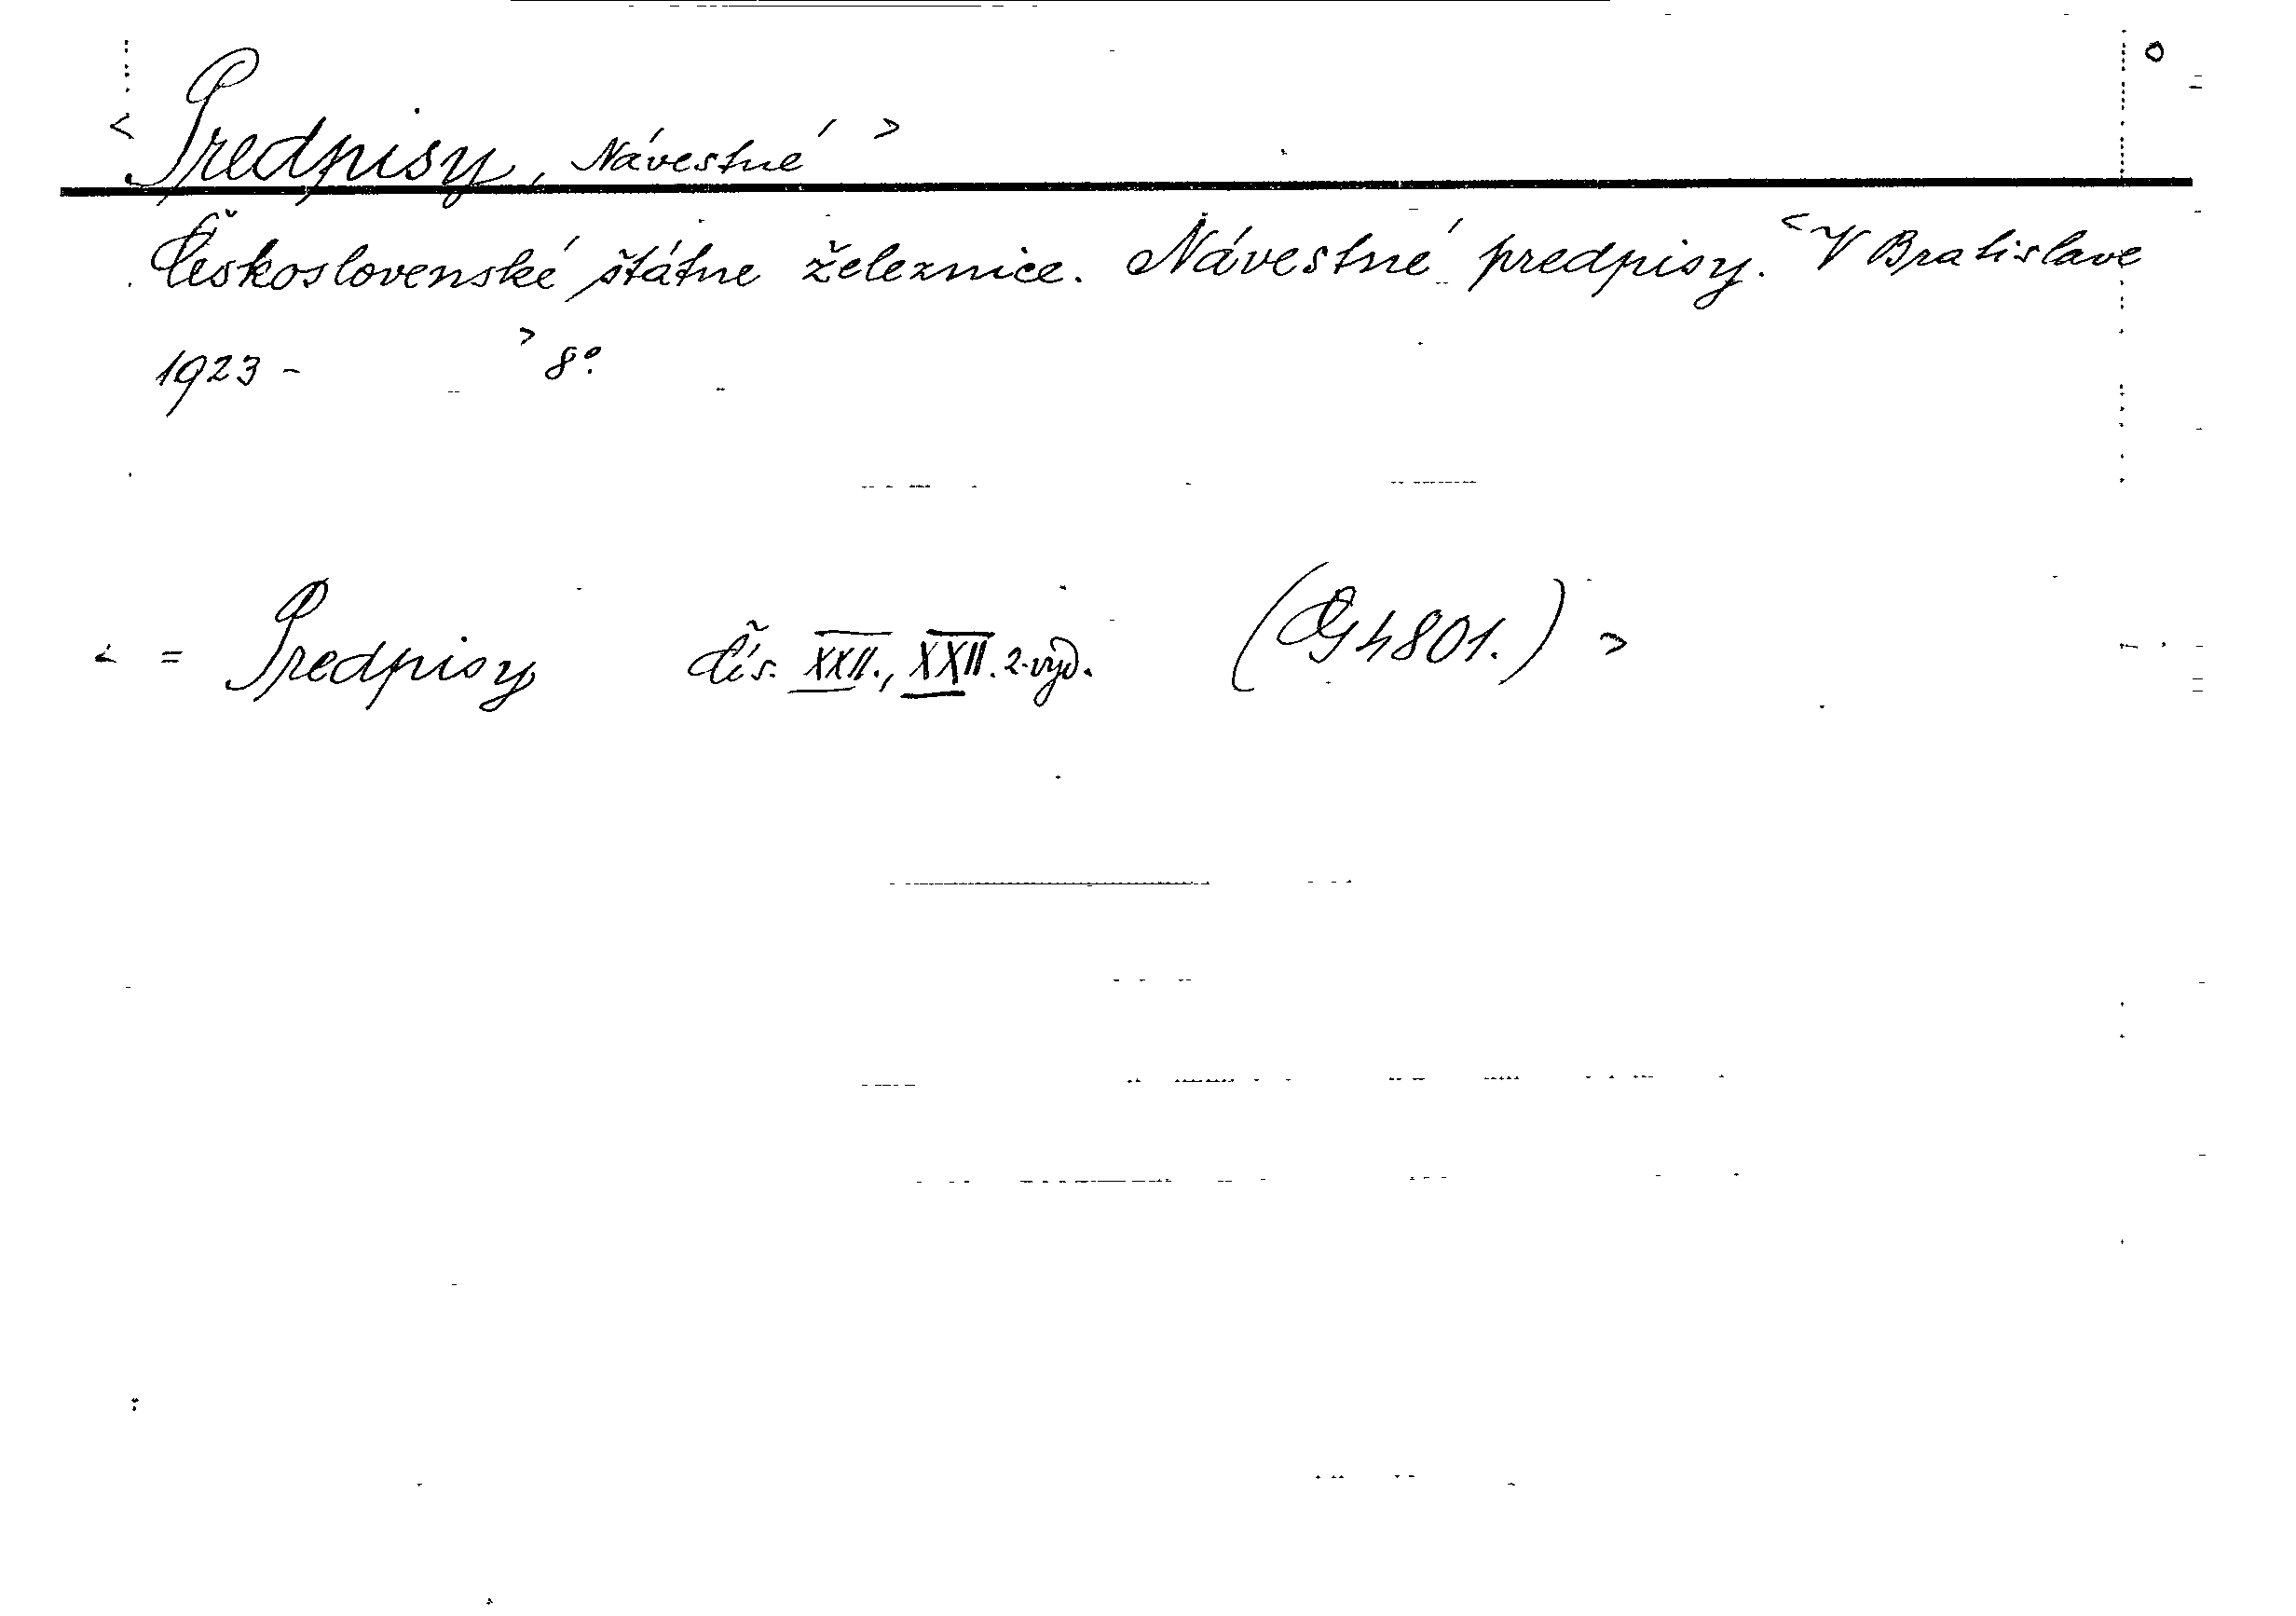 < Predpisy, Návestné >
Československé štátne železnice. Návestné predpisy. < V Bratislave
1923 - > 8°.
< = Predpisy čís. XXII., XXII. 2. vyd. (G 4801.) >